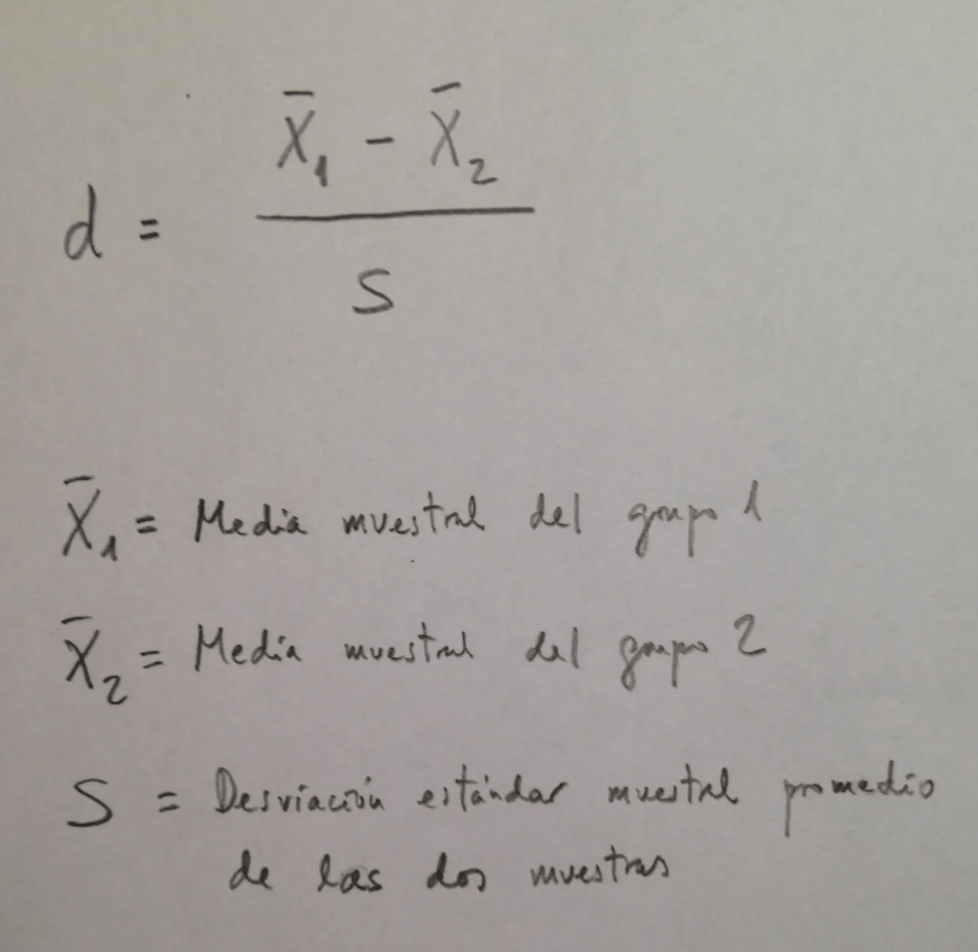 d = (X̄₁ - X̄₂) / S
X̄₁ = Media muestral del grupo 1
X̄₂ = Media muestral del grupo 2
S = Desviación estándar muestral promedio
de las dos muestras